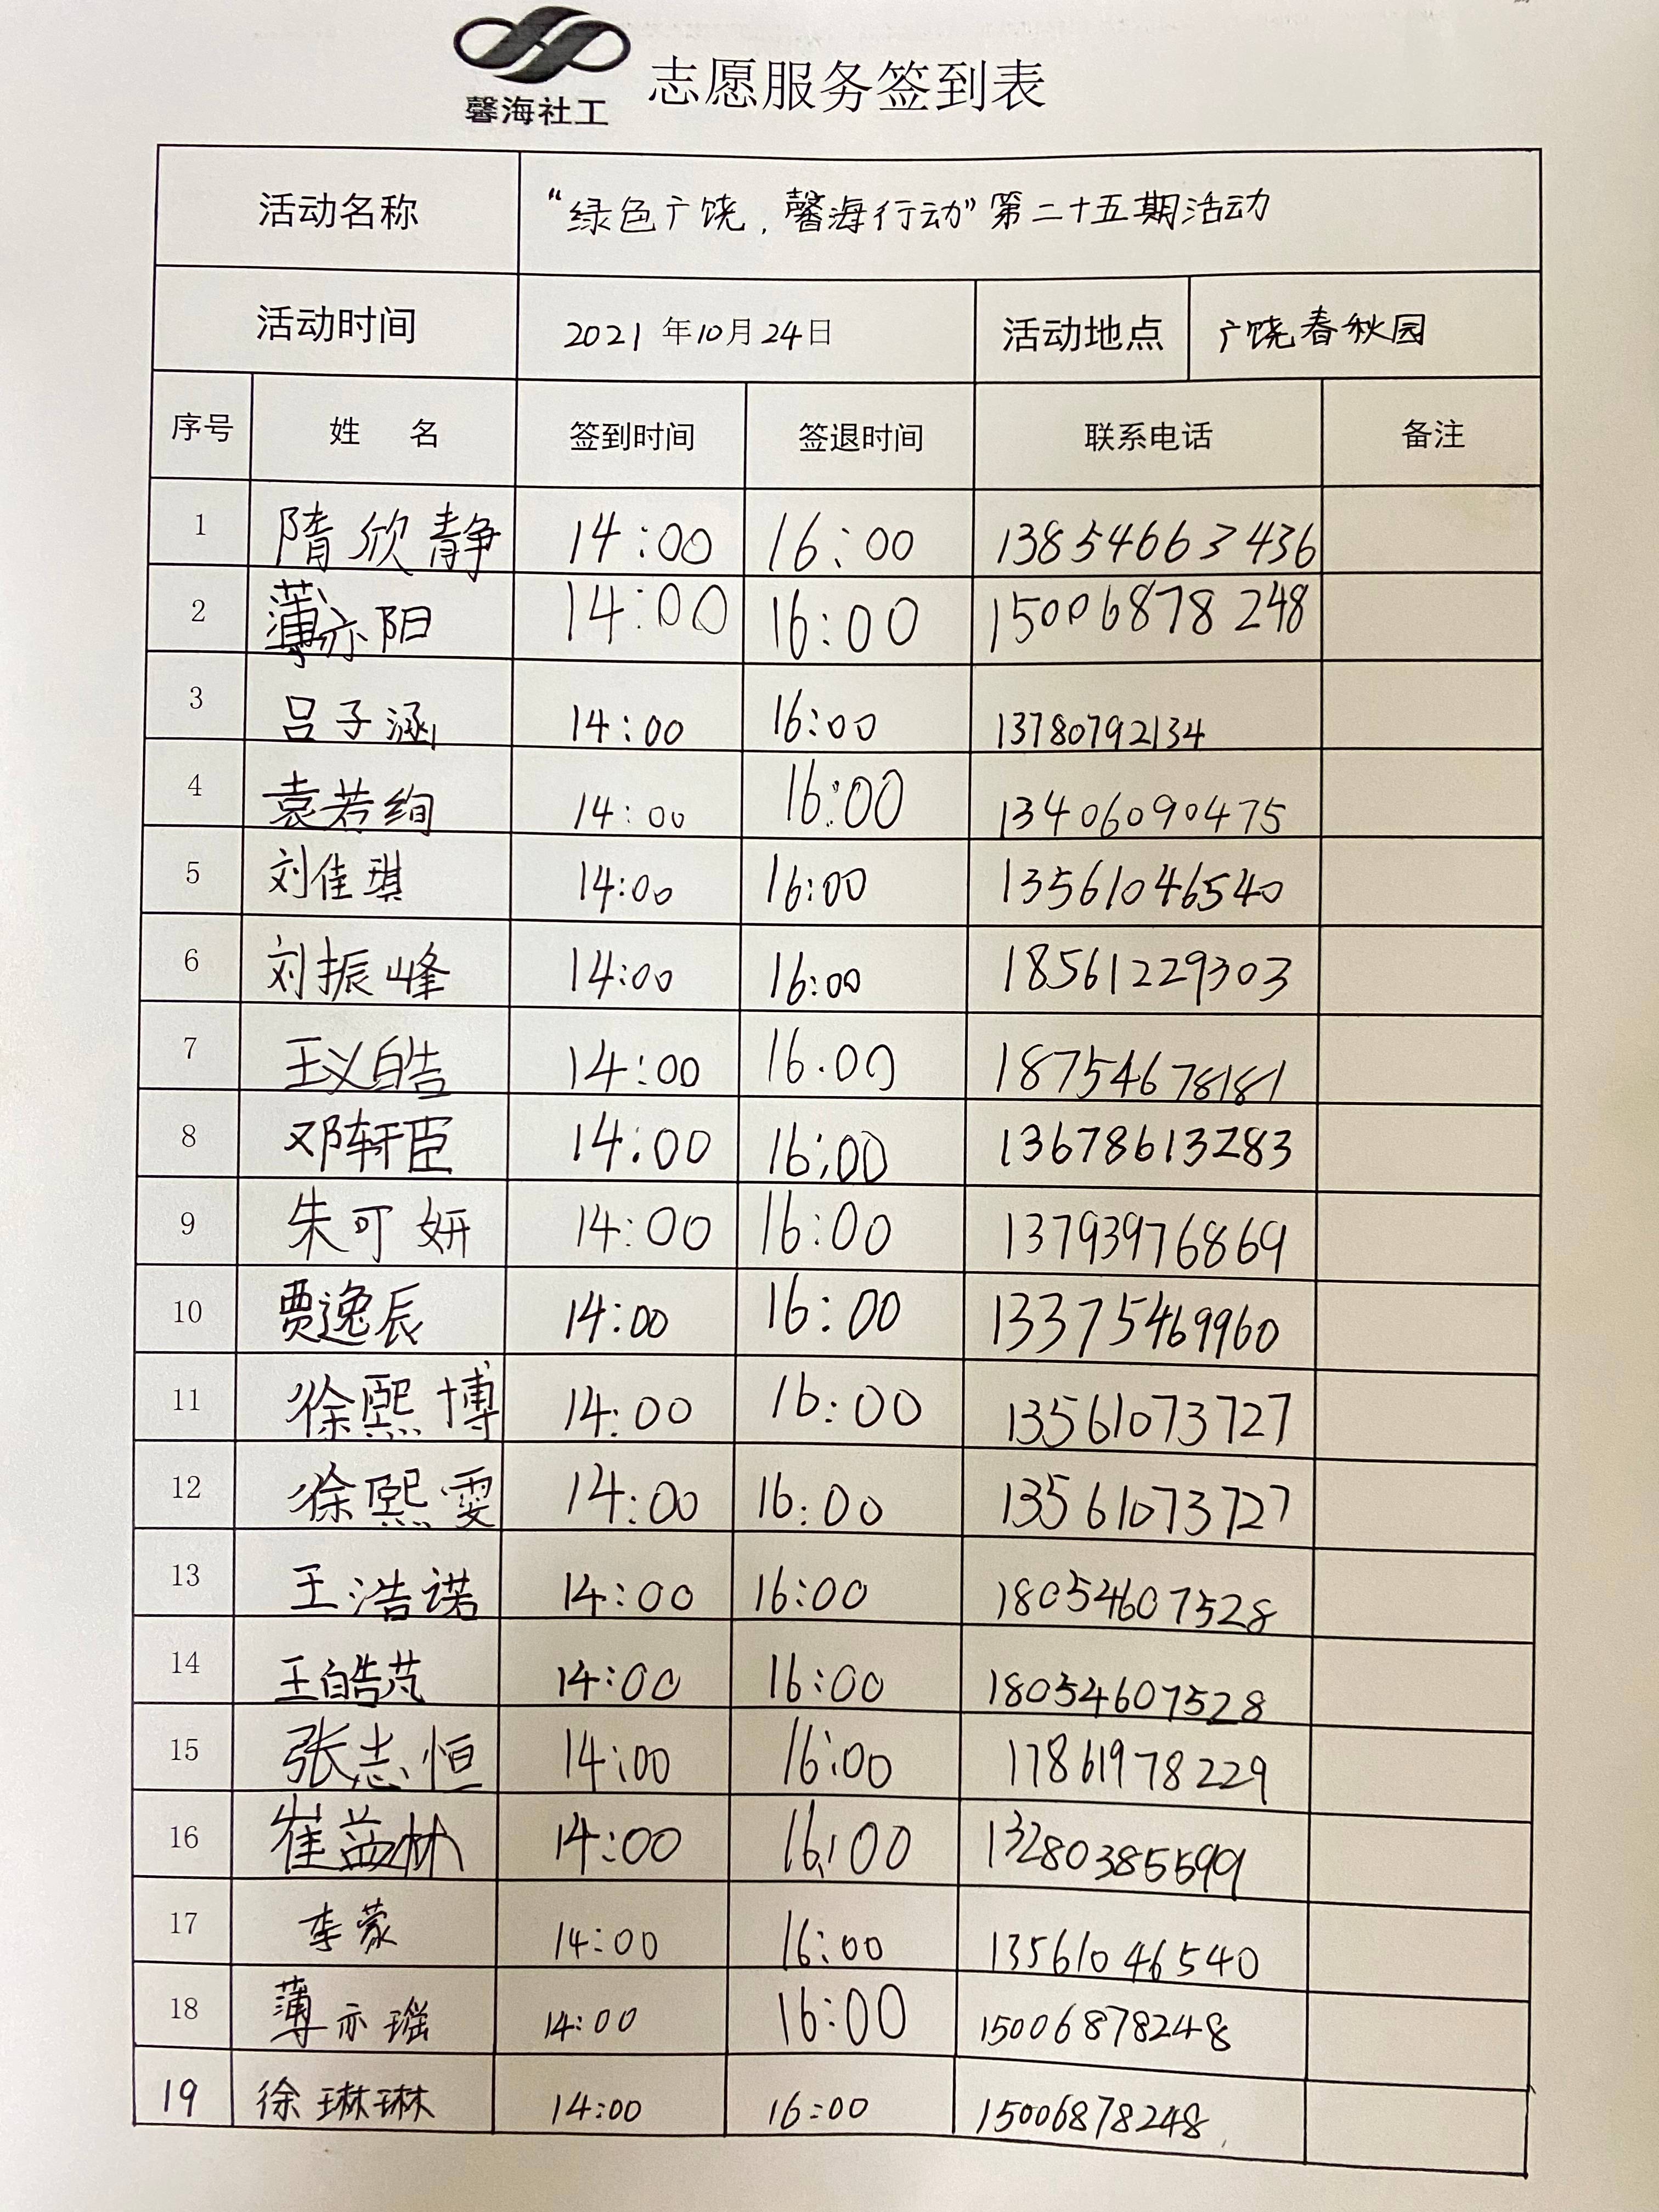 馨海社工
志愿服务签到表
活动名称 “绿色广饶，馨海行动”第二十五期活动
活动时间 2021年10月24日 活动地点 广饶春秋园
序号 姓 名 签到时间 签退时间 联系电话 备注
1 隋欣静 14:00 16:00 13854663436
2 薄亦阳 14:00 16:00 15006878248
3 吕子涵 14:00 16:00 13780792134
4 袁若绚 14:00 16:00 13406090475
5 刘佳琪 14:00 16:00 13561046540
6 刘振峰 14:00 16:00 18561229303
7 王义皓 14:00 16.00 18754678181
8 邓轩臣 14:00 16:00 13678613283
9 朱可妍 14:00 16:00 13793976869
10 贾逸辰 14:00 16:00 13375469960
11 徐熙博 14:00 16:00 13561073727
12 徐熙雯 14:00 16:00 13561073727
13 王浩诺 14:00 16:00 18054607528
14 王皓芃 14:00 16:00 18054607528
15 张志恒 14:00 16:00 17861978229
16 崔益林 14:00 16:00 13280385599
17 李蒙 14:00 16:00 13561046540
18 薄亦瑶 14:00 16:00 15006878248
19 徐琳琳 14:00 16:00 15006878248